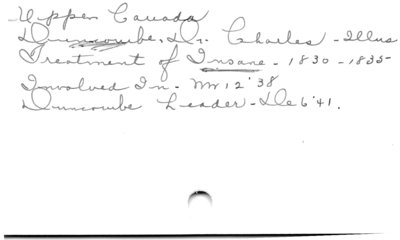 Upper Canada
Duncombe, Dr. Charles - Illus
Treatment of Insane - 1830 - 1835-
Involved In - Mr 12 '38
Duncombe Leader - De 6 '41.